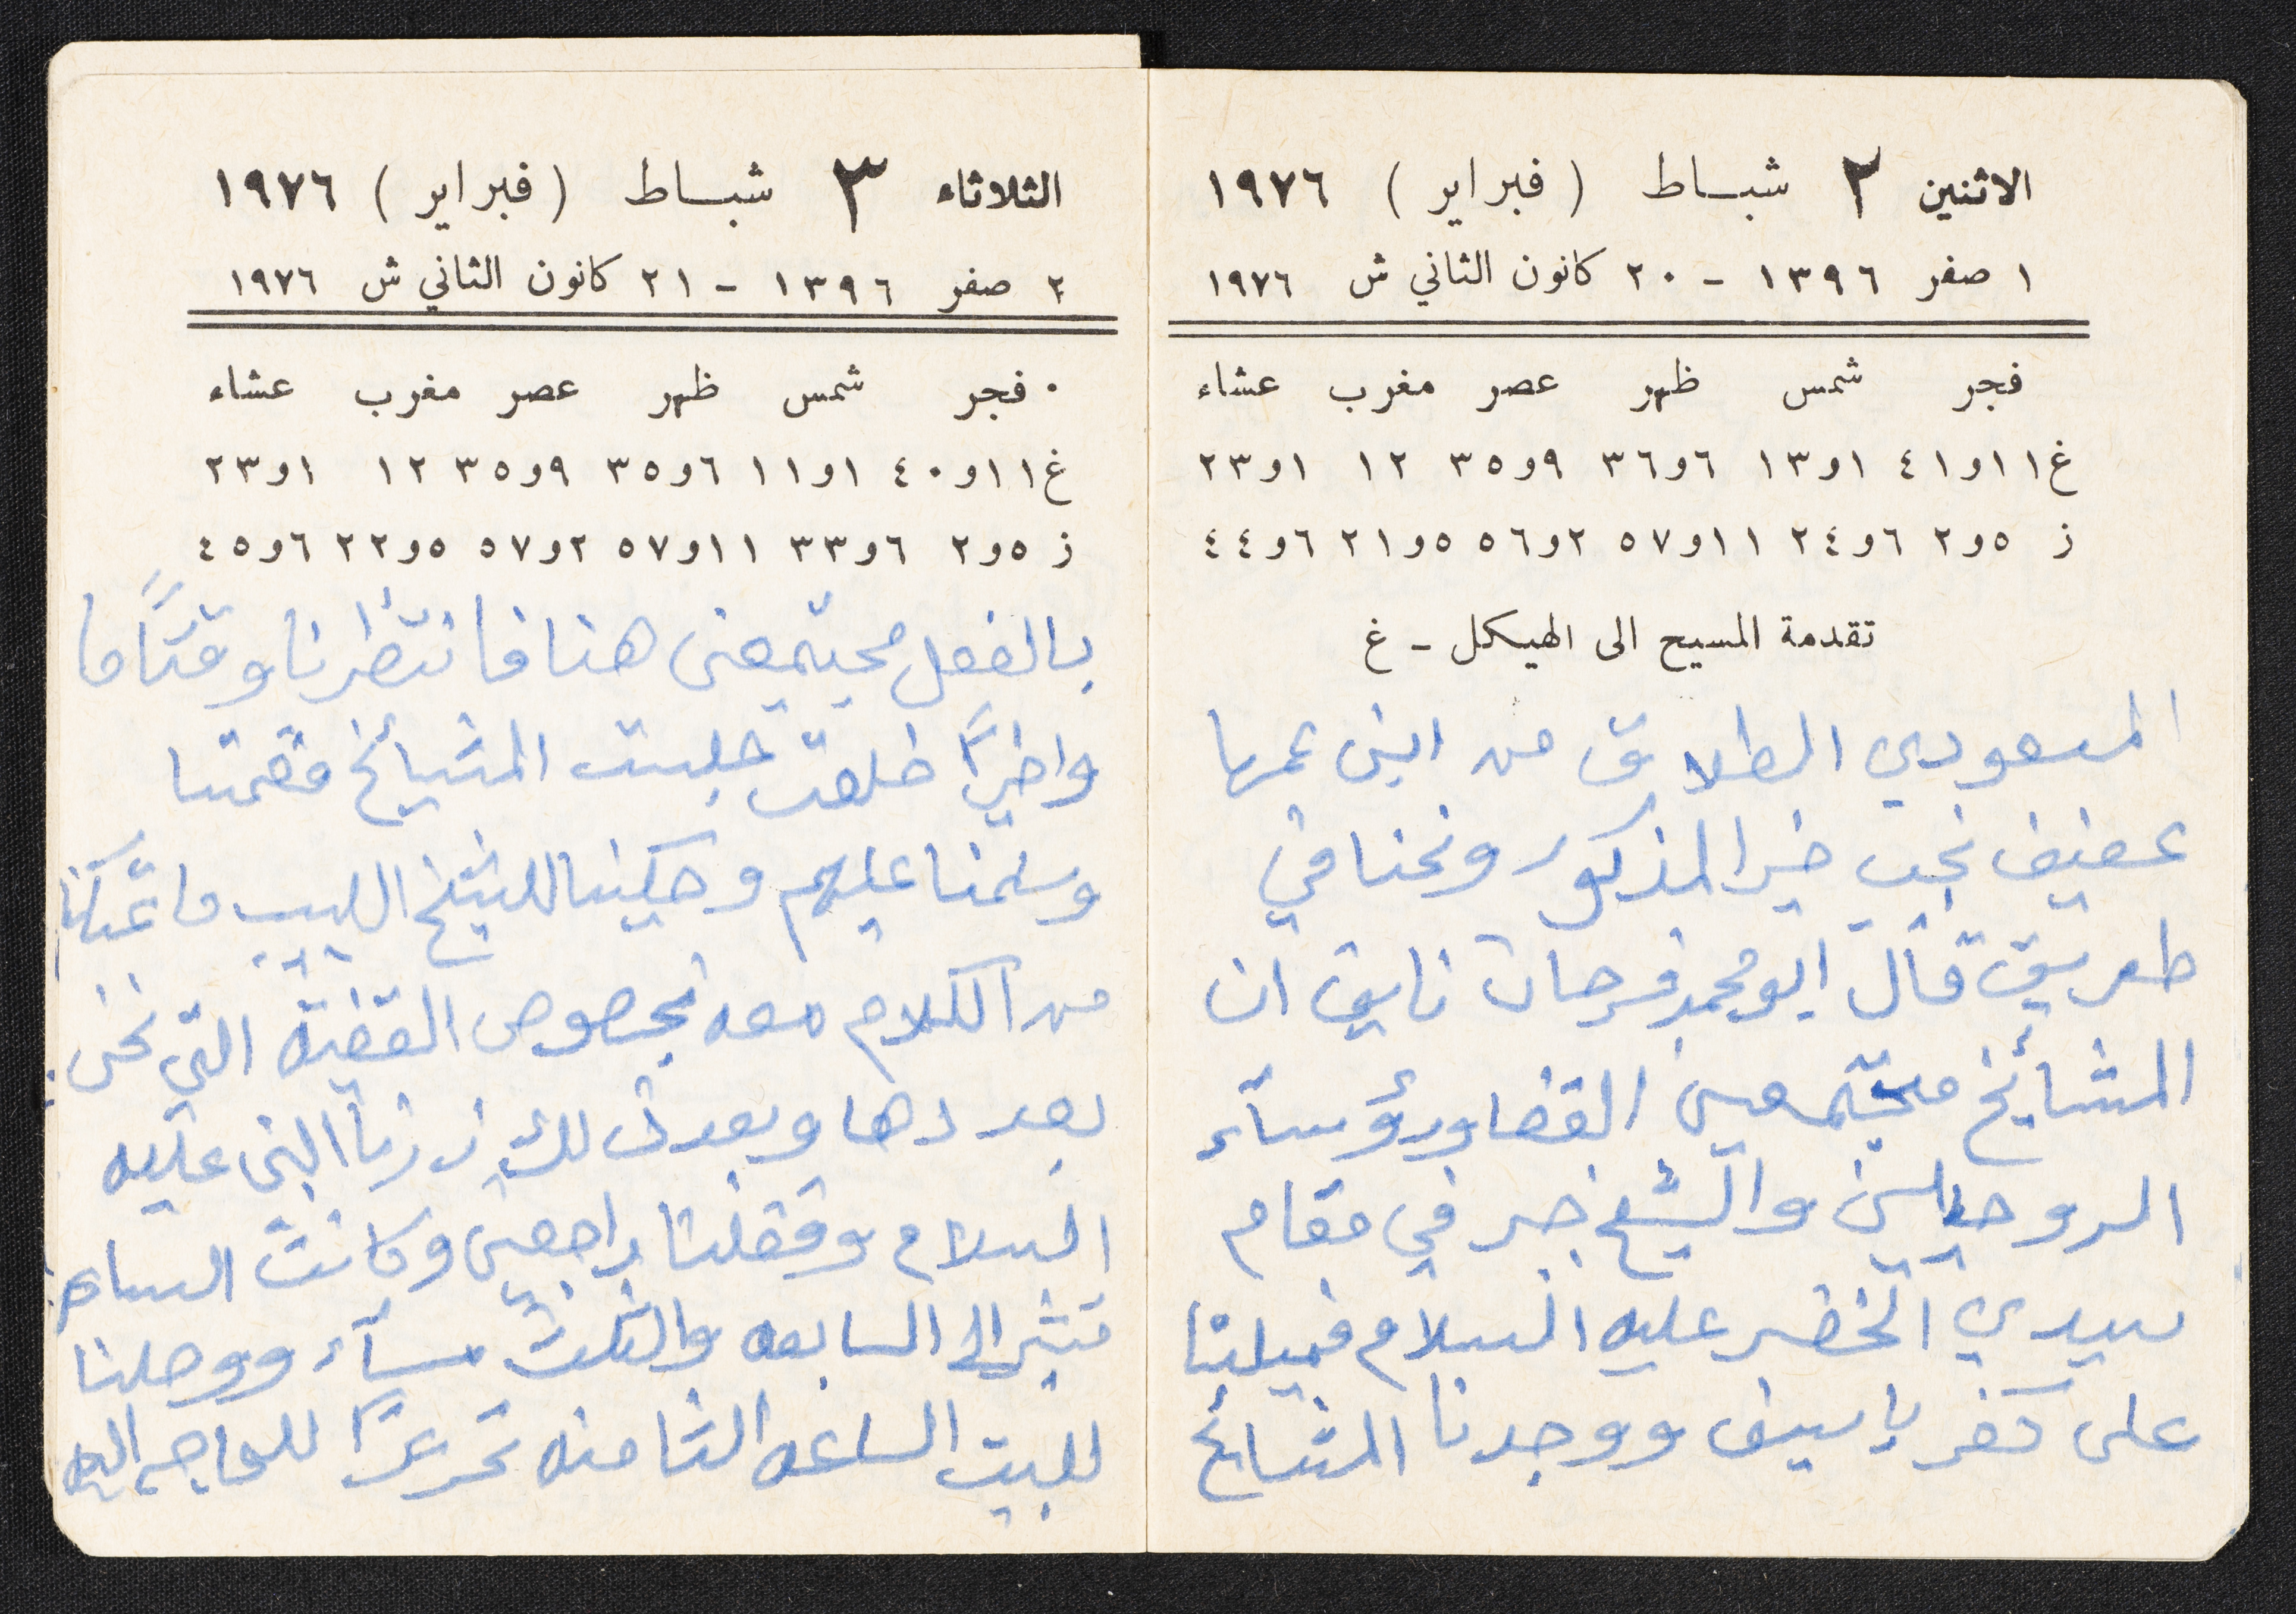 الاثنين ٢ شباط (فبراير) ١٩٧٦
١ صفر ١٣٩٦ - ٢٠ كانون الثاني ش ١٩٧٦
فجر شمس ظهر عصر مغرب عشاء
غ ١١و٤١ ١و١٣ ٦و٣٦ ٩و٣٥ ١٢ ١و٢٣
ز ٥و٢ ٦و٢٤ ١١و٥٧ ٢و٥٦ ٥و٢١ ٦و٤٤
تقدمة المسيح الى الهيكل - غ
المسعودي الطلاق من ابن عمها
عفيف نجيب خير المذكور ونحنا في
طريق قال ابو محمد فرحان نايف ان
المشائخ مجتمعين القضا ورؤسآء
الروحيين والشيخ جبر في مقام
سيدي الخضر عليه السلام فميلنا
على كفر ياسيف ووجدنا المشائخ
الثلاثاء ٣ شباط (فبراير) ١٩٧٦
٢ صفر ١٣٩٦ - ٢١ كانون الثاني ش ١٩٧٦
فجر شمس ظهر عصر مغرب عشاء
غ ١١و٤٠ ١و١١ ٦و٣٥ ٩و٣٥ ١٢ ١و٢٣
ز ٥و٢ ٦و٣٣ ١١و٥٧ ٢و٥٧ ٥و٢٢ ٦و٤٥
بالفعل مجتمعين هنا فانتظرنا وقتًا ما
واخيرًا خلصت جلست المشيائخ فقمنا
وسلمنا عليهم وحكينا للشيخ اللبيب ما تمكنا
من الكلام معه بخصوص القضية التي نحن
بصددها وبعد ذلك زرنا النبي عليه
السلام وقفلنا راجعين وكانت الساعه
تشير الى السابعه والثلث مسآء ووصلنا
للبيت الساعه الثامنه تحريرًا للحاجه اليه